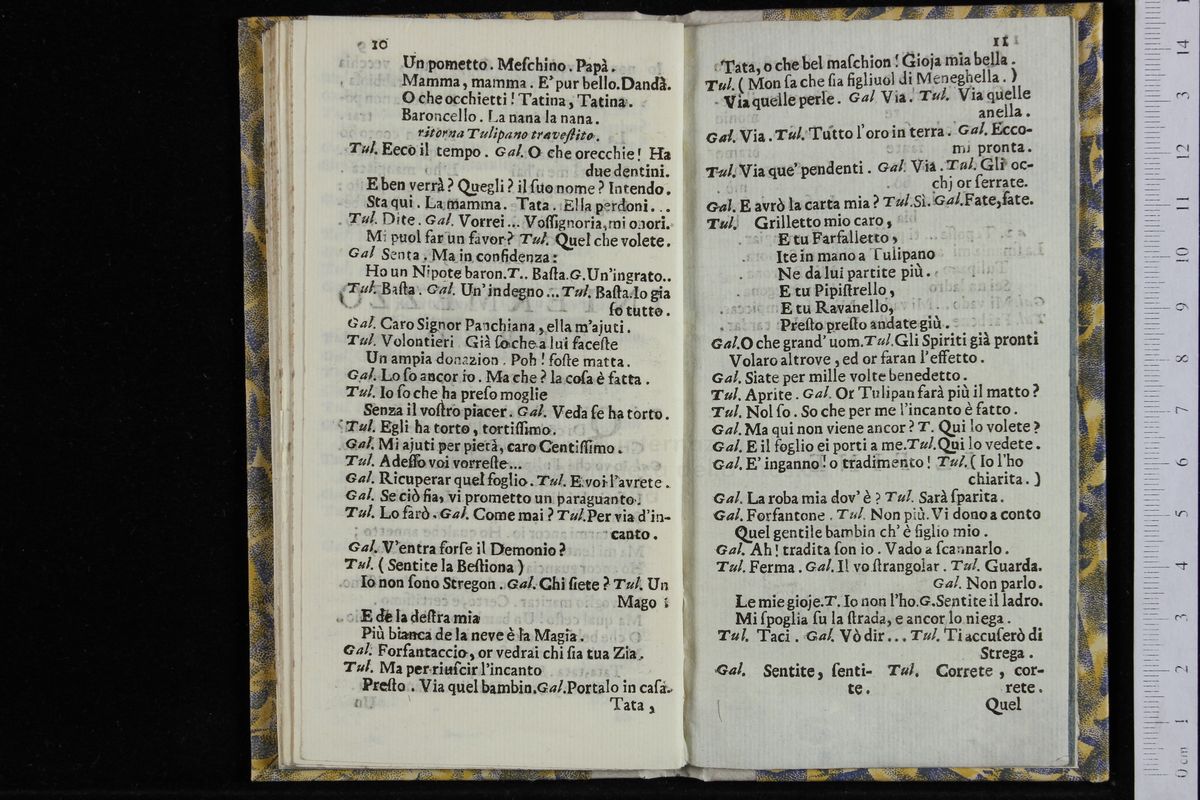 10
Un pometto. Meſchino. Papà.
Mamma, mamma. E' pur bello. Dandà.
O che occhietti! Tatina, Tatina.
Baroncello. La nana la nana.
ritorna Tulipano traveſtito.
Tul. Ecco il tempo. Gal. O che orecchie! Ha
due dentini.
E ben verrà? Quegli? il ſuo nome? Intendo.
Sta qui. La mamma. Tata. Ella perdoni...
Tul. Dite. Gal. Vorrei... Voſſignoria, mi onori.
Mi puol far un favor? Tul. Quel che volete.
Gal Senta. Ma in confidenza:
Ho un Nipote baron. T.. Baſta. G. Un'ingrato..
Tul. Baſta. Gal. Un'indegno... Tul. Baſta. Io gia
ſo tutto.
Gal. Caro Signor Panchiana, ella m'ajuti.
Tul. Volontieri Già ſo che a lui faceſte
Un ampia donazion. Poh! foſte matta.
Gal. Lo ſo ancor io. Ma che? la coſa è fatta.
Tul. Io ſo che ha preſo moglie
Senza il voſtro piacer. Gal. Veda ſe ha torto.
Tul. Egli ha torto, tortiſſimo.
Gal. Mi ajuti per pietà, caro Centiſſimo.
Tul. Adeſſo voi vorreſte...
Gal. Ricuperar quel foglio. Tul. E voi l'avrete.
Gal. Se ciò ſia, vi prometto un paraguanto.
Tul. Lo farò. Gal. Come mai? Tul. Per via d'in-
canto.
Gal. V'entra forſe il Demonio?
Tul. (Sentite la Beſtiona)
Io non ſono Stregon. Gal. Chi ſiete? Tul. Un
Mago:
E de la deſtra mia
Più bianca de la neve è la Magia.
Gal. Forfantaccio, or vedrai chi ſia tua Zia.
Tul. Ma per riuſcir l'incanto
Preſto. Via quel bambin. Gal. Portalo in caſa.
Tata,
11
Tata, o che bel maſchion! Gioja mia bella.
Tul. (Mon ſa che ſia figliuol di Meneghella.)
Via quelle perle. Gal Via. Tul. Via quelle
anella.
Gal. Via. Tul. Tutto l'oro in terra. Gal. Ecco-
mi pronta.
Tul. Via que' pendenti. Gal Via. Tul. Gli oc-
chj or ſerrate.
Gal. E avrò la carta mia? Tul. Sì. Gal. Fate, fate.
Tul. Grilletto mio caro,
E tu Farfalletto,
Ite in mano a Tulipano
Ne da lui partite più.
E tu Pipiſtrello,
E tu Ravanello,
Preſto preſto andate giù.
Gal. O che grand' uom. Tul. Gli Spiriti già pronti
Volaro altrove, ed or faran l'effetto.
Gal. Siate per mille volte benedetto.
Tul. Aprite. Gal. Or Tulipan farà più il matto?
Tul. Nol ſo. So che per me l'incanto è fatto.
Gal. Ma qui non viene ancor? T. Qui lo volete?
Gal. E il foglio ei porti a me. Tul. Qui lo vedete.
Gal. E' inganno! o tradimento! Tul. (Io l'ho
chiarita.)
Gal. La roba mia dov' è? Tul. Sarà ſparita.
Gal. Forfantone. Tul. Non più. Vi dono a conto
Quel gentile bambin ch' è figlio mio.
Gal. Ah! tradita ſon io. Vado a ſcannarlo.
Tul. Ferma. Gal. Il vo ſtrangolar. Tul. Guarda.
Gal. Non parlo.
Le mie gioje. T. Io non l'ho. G. Sentite il ladro.
Mi ſpoglia ſu la ſtrada, e ancor lo niega.
Tul. Taci. Gal. Vò dir... Tul. Ti accuſerò di
Strega.
Gal. Sentite, ſenti- Tul. Correte, cor-
te. rete.
Quel